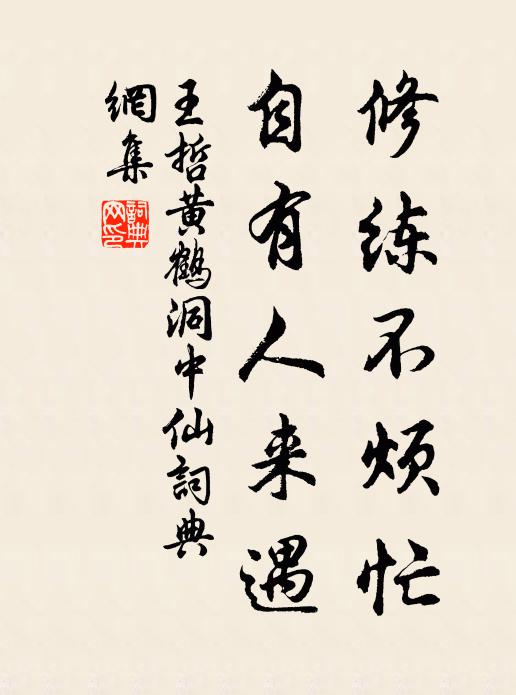 修练不烦忙
自有人来遇
王哲黄鹤洞中仙詞典
網集
詞典網印